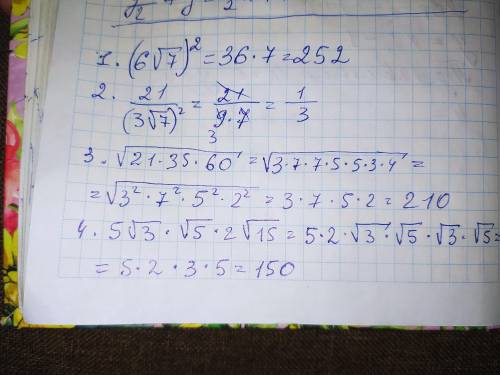 1. (6√7)² = 36·7 = 252
2. 21/(3√7)² = 21/(9·7) = 1/3
3
3. √(21·35·60) = √(3·7·7·5·5·3·4) =
= √(3²·7²·5²·2²) = 3·7·5·2 = 210
4. 5√3 · √5 · 2√15 = 5·2·√3·√5·√3·√5 =
= 5·2·3·5 = 150